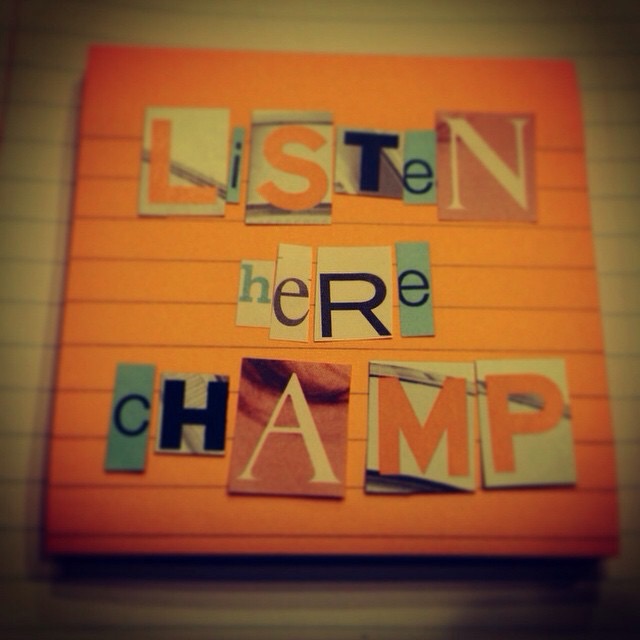 LiSTeN
heRe
cHAMP